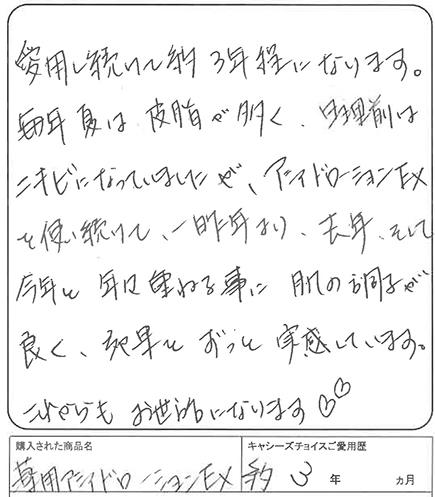 愛用し続けて約3年程になります。
毎年夏は皮脂が多く、生理前は
ニキビになっていましたが、アシィドローションEX
を使い続けて、一昨年より、去年、そして
今年と年を重ねる事に肌の調子が
良く、効果をずっと実感しています。
これからもお世話になります♡♡
購入された商品名
キャシーズチョイスご愛用歴
薬用アシィドローションEX
約3年 ヵ月